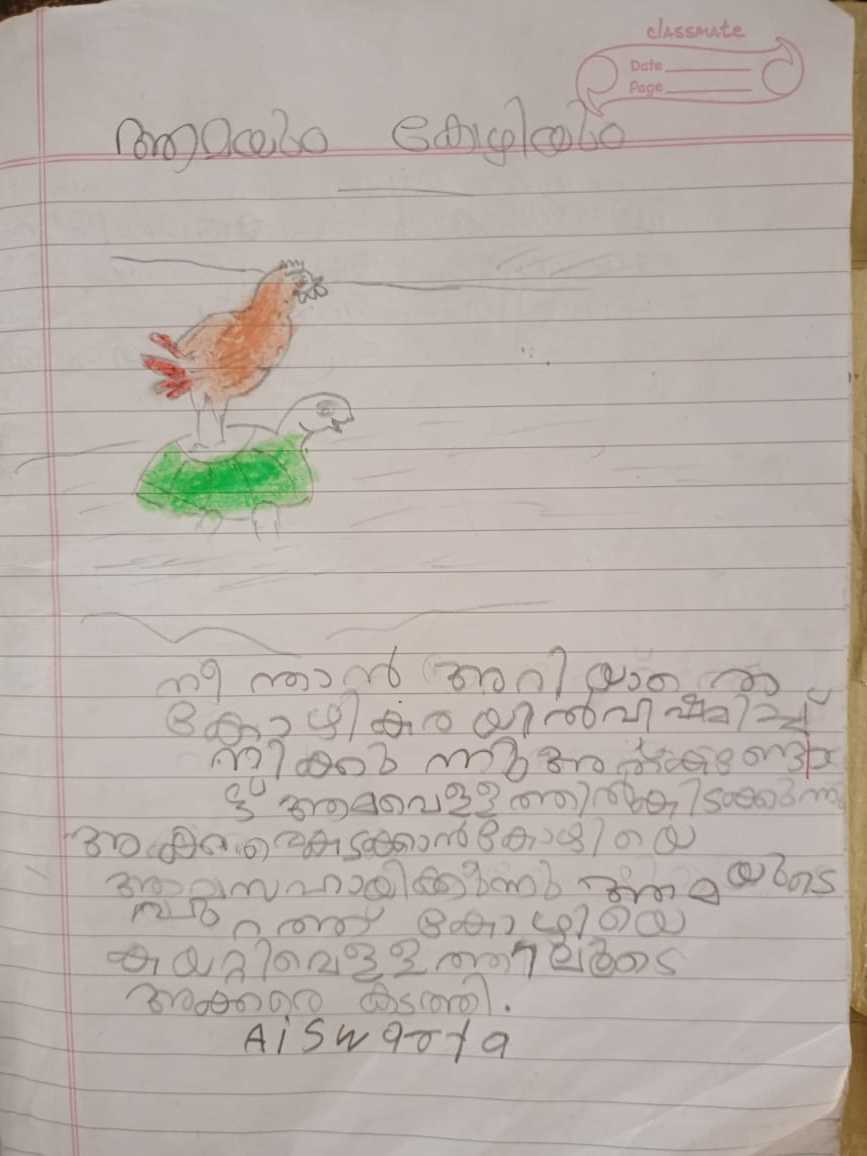 classmate
Date
Page
ആമയും കോഴിയും
നീ ന്താൻ അറി യാത്ത
കോഴി കര യിൽ വിഷമിച്ച്
നിക്കു ന്നു
ആമ വെള്ളത്തിൽ കിടക്കുന്നു
അക്കരെ കടക്കാൻ കോഴിയെ
ആമ സഹായിക്കുന്നു ആമ യുടെ
പുറത്ത് കോഴിയെ
കയറ്റി വെള്ളത്തിലൂടെ
അക്കരെ കടത്തി.
Aiswarya